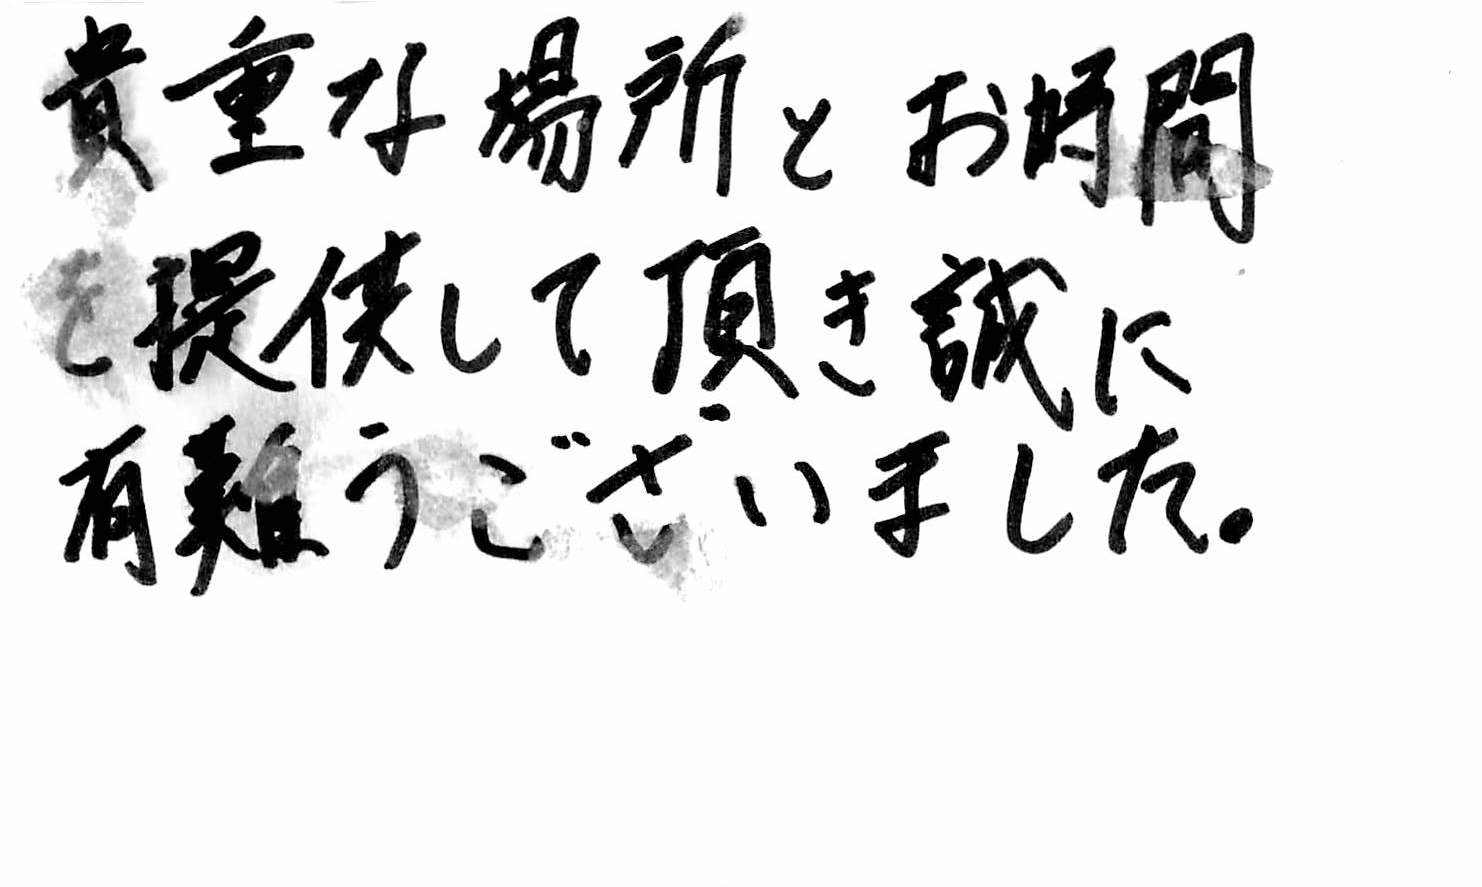 貴重な場所とお時間
を提供して頂き誠に
有難うございました。